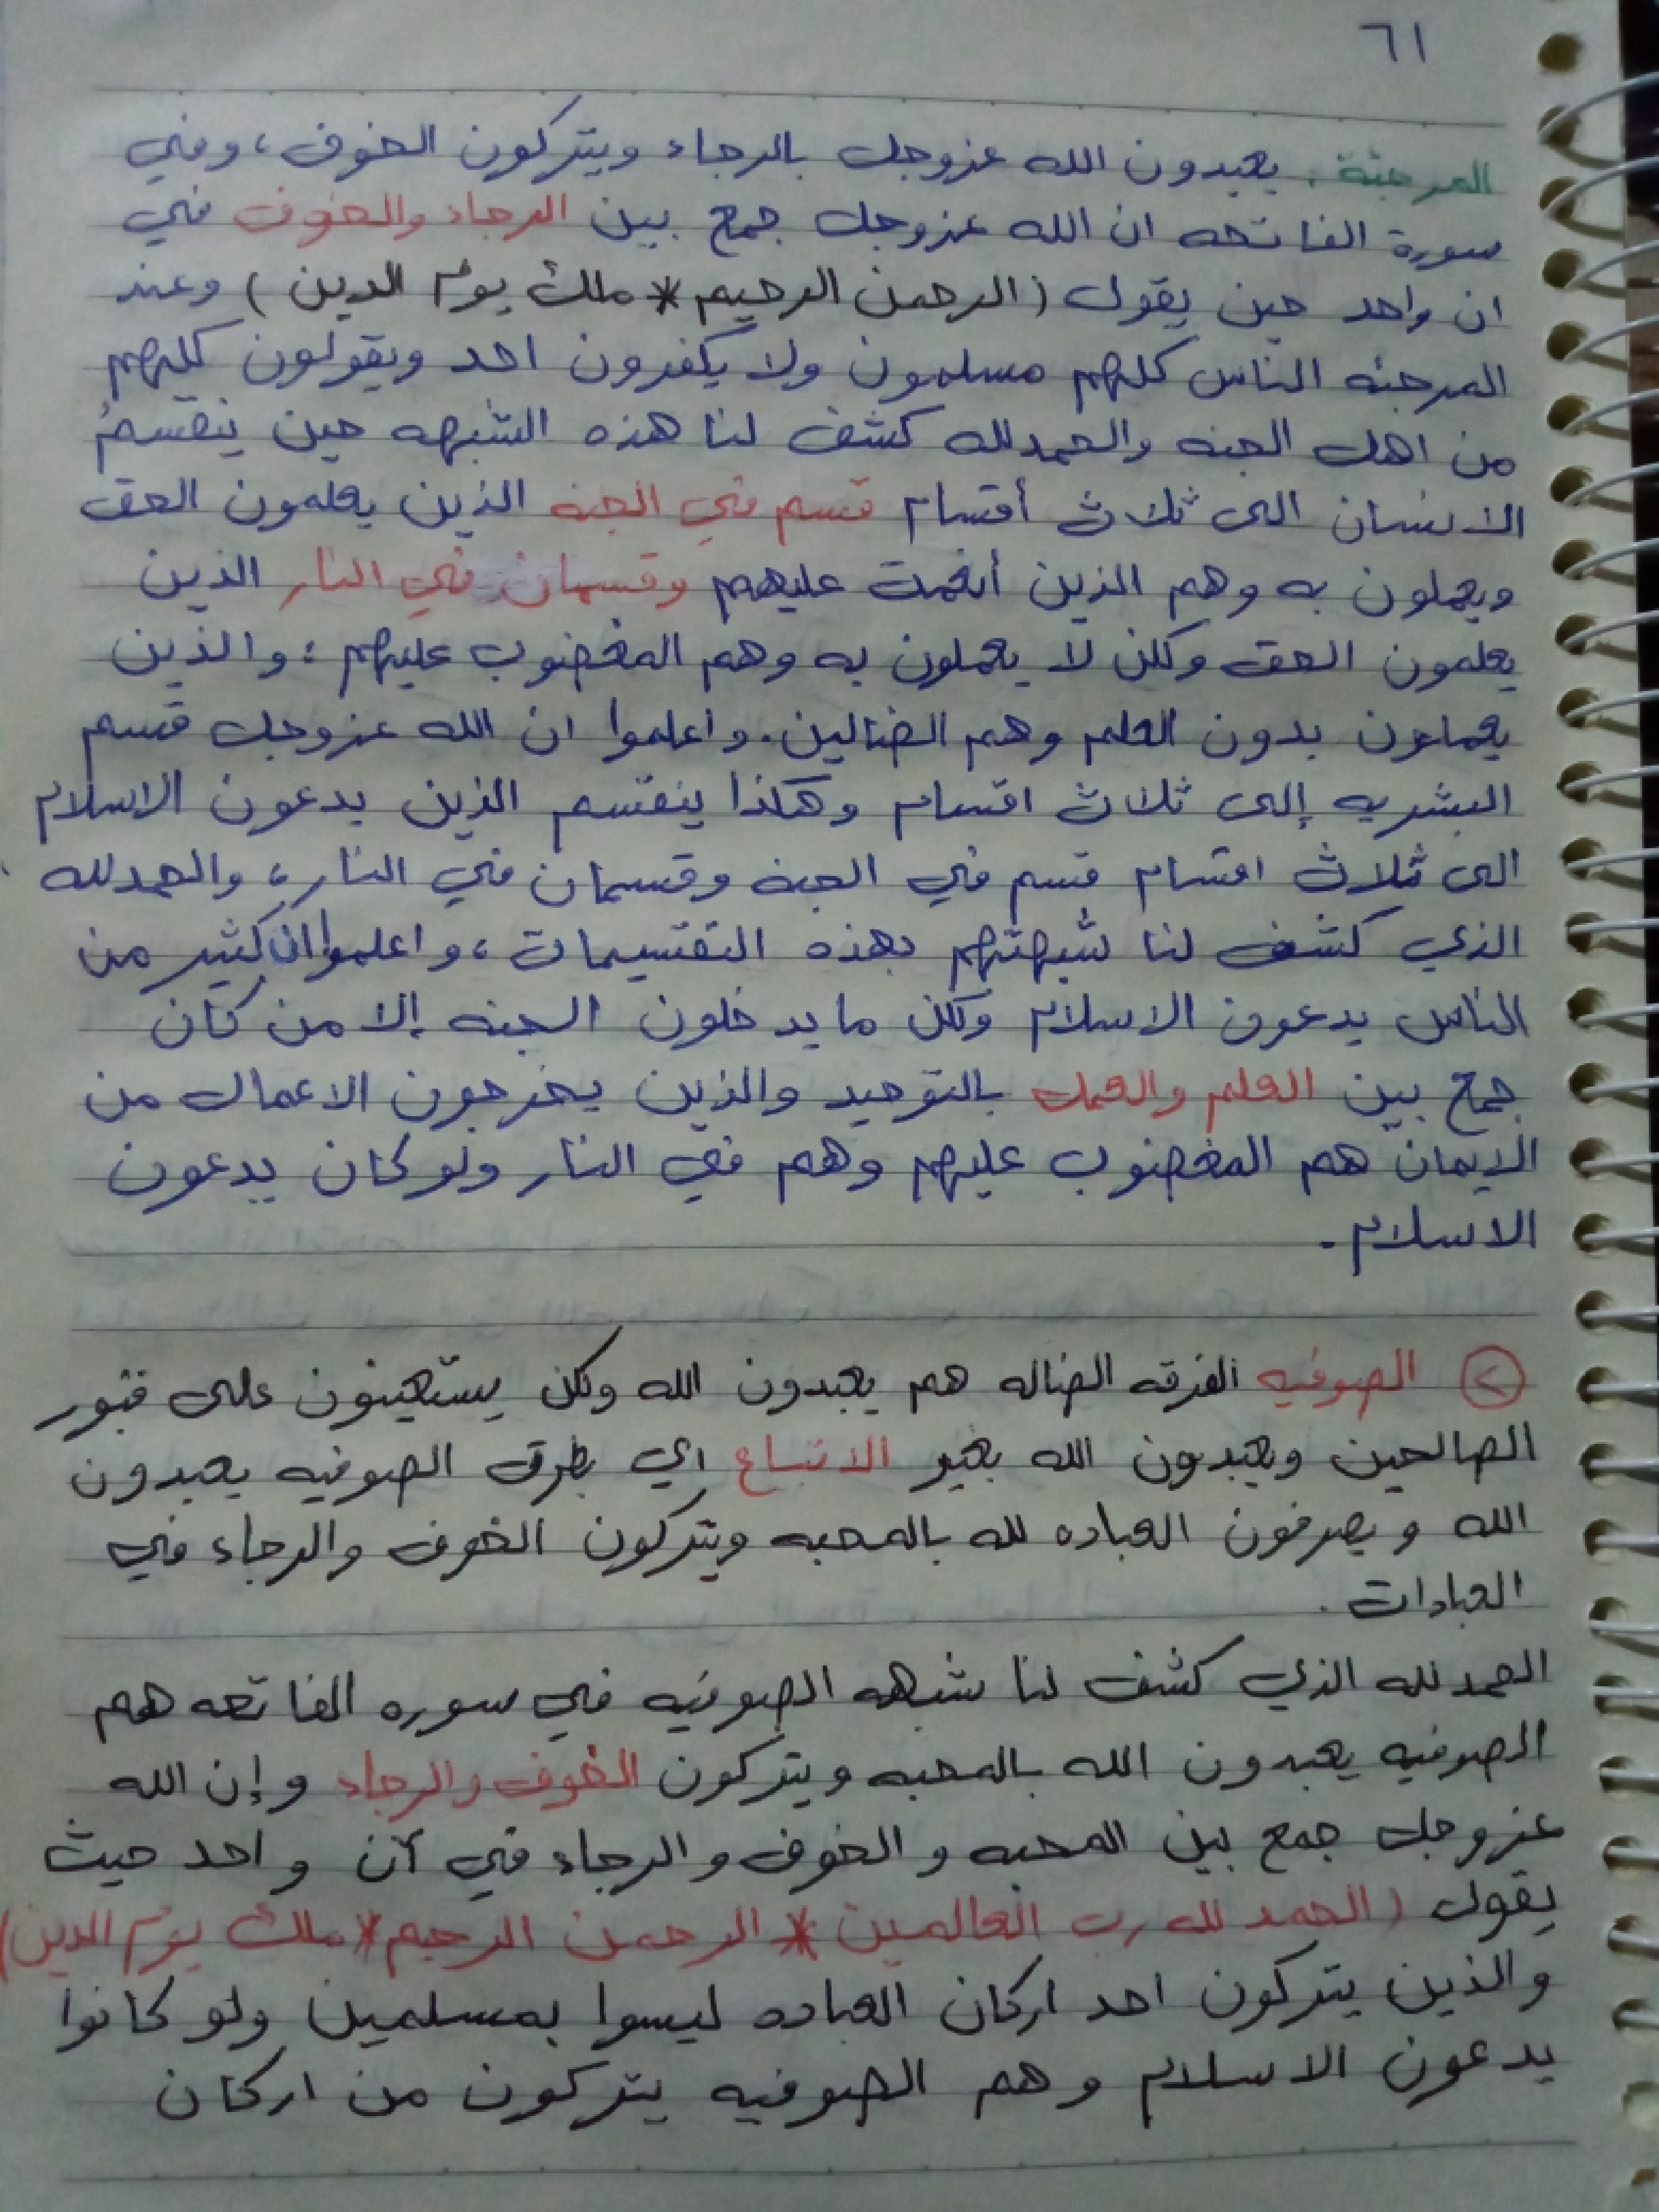 ٦١
المرجئة: يعبدون الله عزوجل بالرجاء ويتركون الخوف، وفي
سورة الفاتحه ان الله عزوجل جمع بين الرجاء والخوف في
ان واحد حين يقول (الرحمن الرحيم * ملك يوم الدين) وعند
المرجئه الناس كلهم مسلمون ولا يكفرون احد ويقولون كليهم
من اهل الجنه والحمدلله كشف لنا هذه الشبهه حين ينقسم
الانسان الى ثلاث أقسام قسم في الجنه الذين يعلمون الحق
ويعملون به وهم الذين أنعمت عليهم وقسمان في النار الذين
يعلمون الحق ولكن لا يعملون به وهم المغضوب عليهم؛ والذين
يعملون بدون العلم وهم الضالين. واعلموا ان الله عزوجل قسم
البشريه إلى ثلاث اقسام وهكذا ينقسم الذين يدعون الاسلام
الى ثلاث اقسام قسم في الجنة وقسمان في النار، والحمدلله
الذي كشف لنا شبهتهم بهذه التقسيمات، واعلموا ان كثير من
الناس يدعون الاسلام ولكن ما يدخلون الجنه إلا من كان
جمع بين العلم والعمل بالتوحيد والذين يخرجون الاعمال من
الايمان هم المغضوب عليهم وهم في النار ولو كان يدعون
الاسلام.
٢ الصوفيه الفرقه الضاله هم يعبدون الله ولكن يستعينون على قبور
الصالحين ويعبدون الله بغير الاتباع اي بطرق الصوفيه يعبدون
الله و يصرفون العباده لله بالمحبه ويتركون الخوف والرجاء في
العبادات.
الحمدلله الذي كشف لنا شبهه الصوفيه في سوره الفاتحه هم
الصوفيه يعبدون الله بالمحبه ويتركون الخوف والرجاء وإن الله
عزوجل جمع بين المحبه والخوف والرجاء في آن واحد حيث
يقول (الحمد لله رب العالمين * الرحمن الرحيم * ملك يوم الدين)
والذين يتركون احد اركان العباده ليسوا بمسلمين ولو كانوا
يدعون الاسلام وهم الصوفيه يتركون من اركان